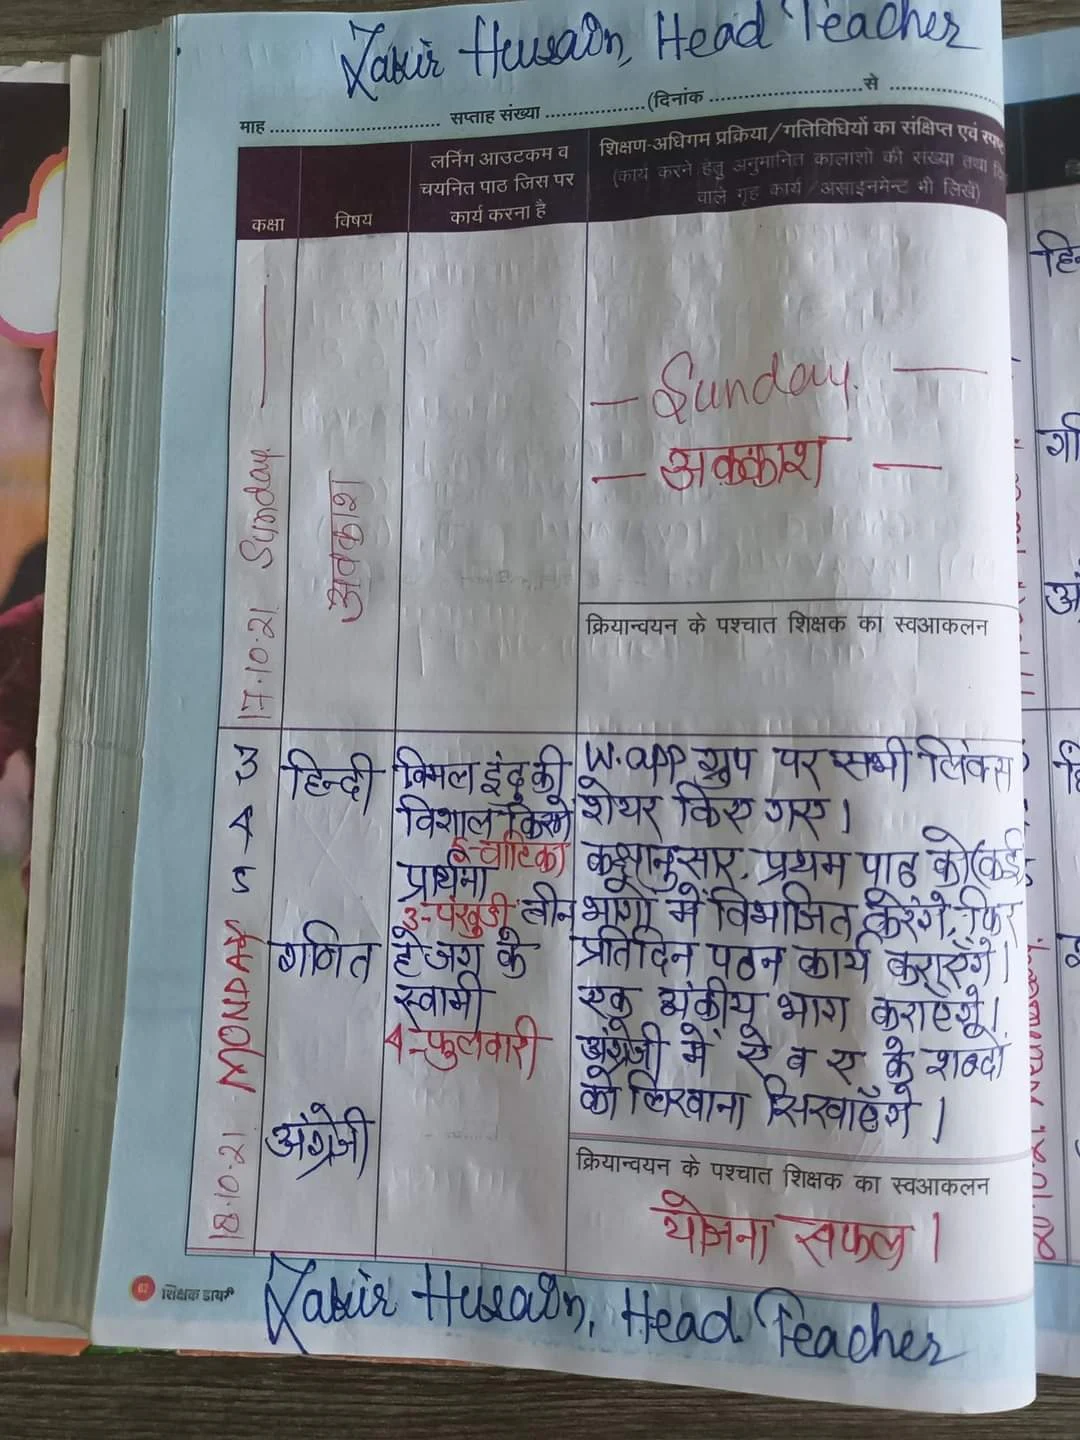 Zabir Husain, Head Teacher
माह ........................ सप्ताह संख्या ............... (दिनांक ........................ से ..................
कक्षा
विषय
लर्निंग आउटकम व
चयनित पाठ जिस पर
कार्य करना है
शिक्षण-अधिगम प्रक्रिया/गतिविधियों का संक्षिप्त एवं
(कार्य करने हेतु अनुमानित कालांशो की संख्या तथा
वाले गृह कार्य/असाइनमेन्ट भी लिखें)
17.10.21 Sunday
अवकाश
— Sunday —
— अवकाश —
क्रियान्वयन के पश्चात शिक्षक का स्वआकलन
18.10.21 MONDAY
3
4
5
हिन्दी
गणित
अंग्रेजी
विमल इंदु की
विशाल किरणें
5-वाटिका
प्रार्थना
3-पंखुड़ी
हे जग के
स्वामी
4-फुलवारी
W.app ग्रुप पर सभी लिंक्स
शेयर किए गए।
कक्षानुसार, प्रथम पाठ को (कई,
तीन भागों में विभाजित करेंगे, फिर
प्रतिदिन पठन कार्य कराएँगे।
एक अंकीय भाग कराएंगे।
अंग्रेजी में ऐ व ए के शब्दों
को लिखाना सिखाएँगे।
क्रियान्वयन के पश्चात शिक्षक का स्वआकलन
योजना सफल।
62 शिक्षक डायरी
Zabir Husain, Head Teacher